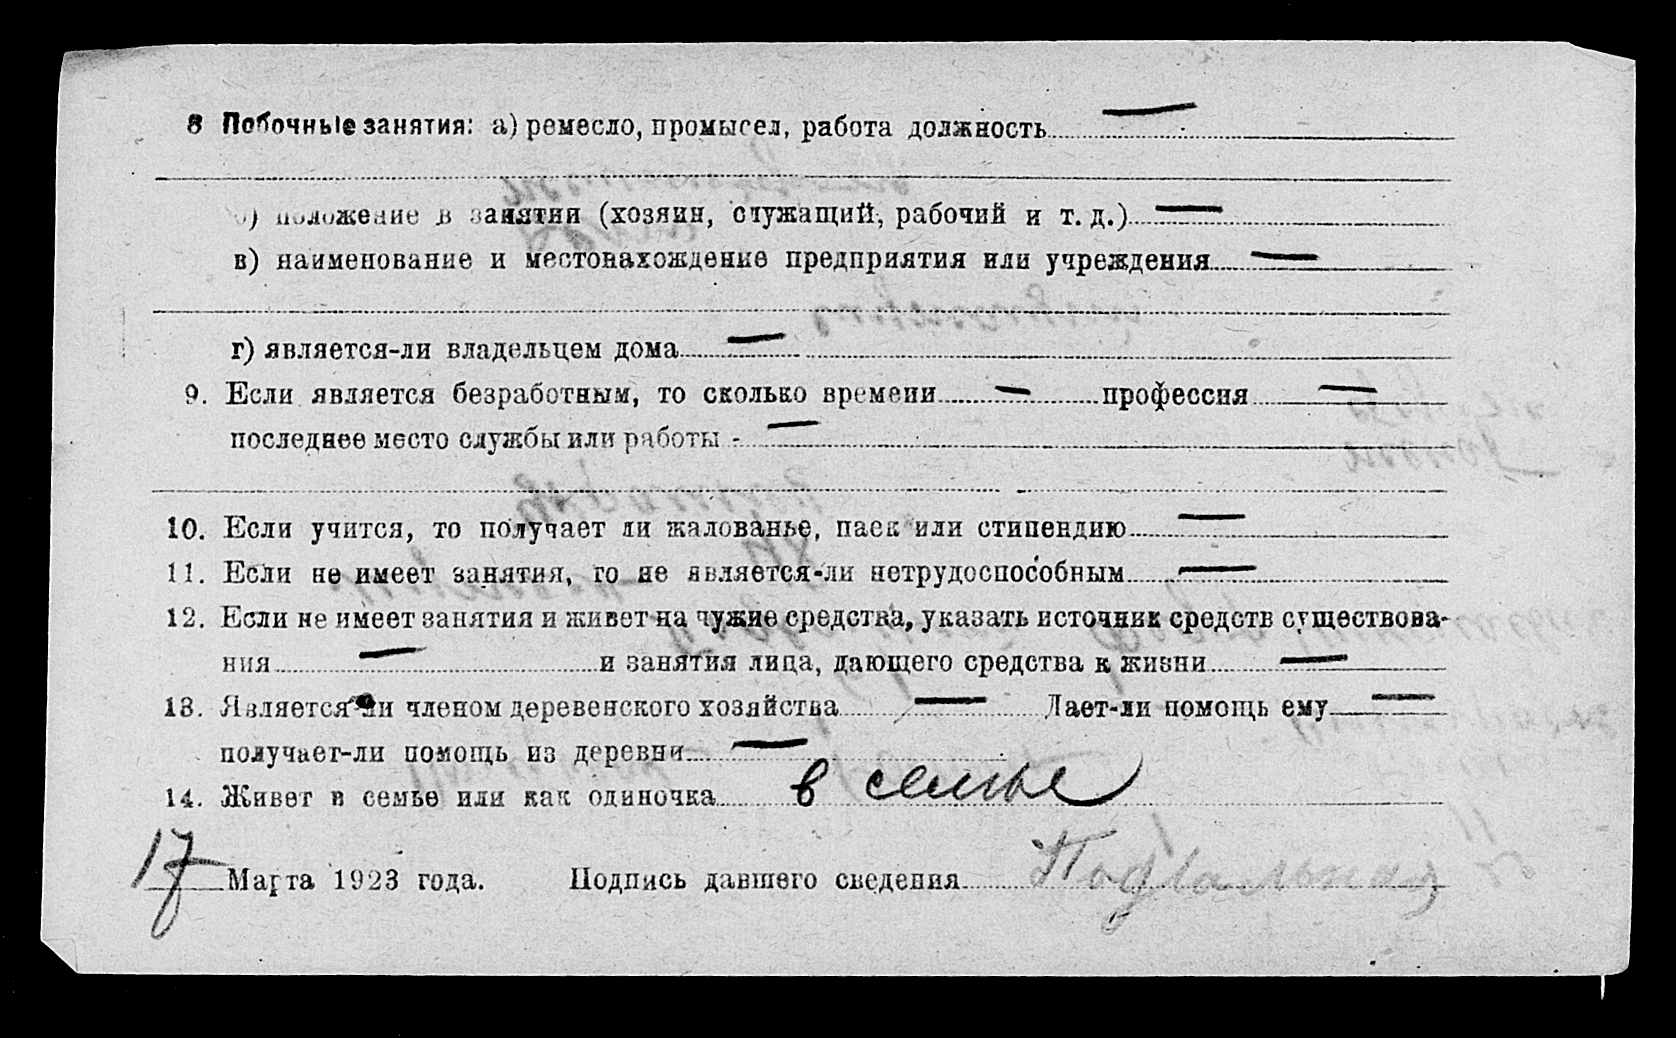 8 Побочные занятия: а) ремесло, промысел, работа должность —
б) положение в занятии (хозяин, служащий, рабочий и т. д.) —
в) наименование и местонахождение предприятия или учреждения —
г) является-ли владельцем дома —
9. Если является безработным, то сколько времени — профессия —
последнее место службы или работы - —
10. Если учится, то получает ли жалованье, паек или стипендию —
11. Если не имеет занятия, то не является-ли нетрудоспособным —
12. Если не имеет занятия и живет на чужие средства, указать источник средств существова-
ния — и занятия лица, дающего средства к жизни —
13. Является ли членом деревенского хозяйства — Дает-ли помощь ему —
получает-ли помощь из деревни —
14. Живет в семье или как одиночка в семье
17 Марта 1923 года. Подпись давшего сведения